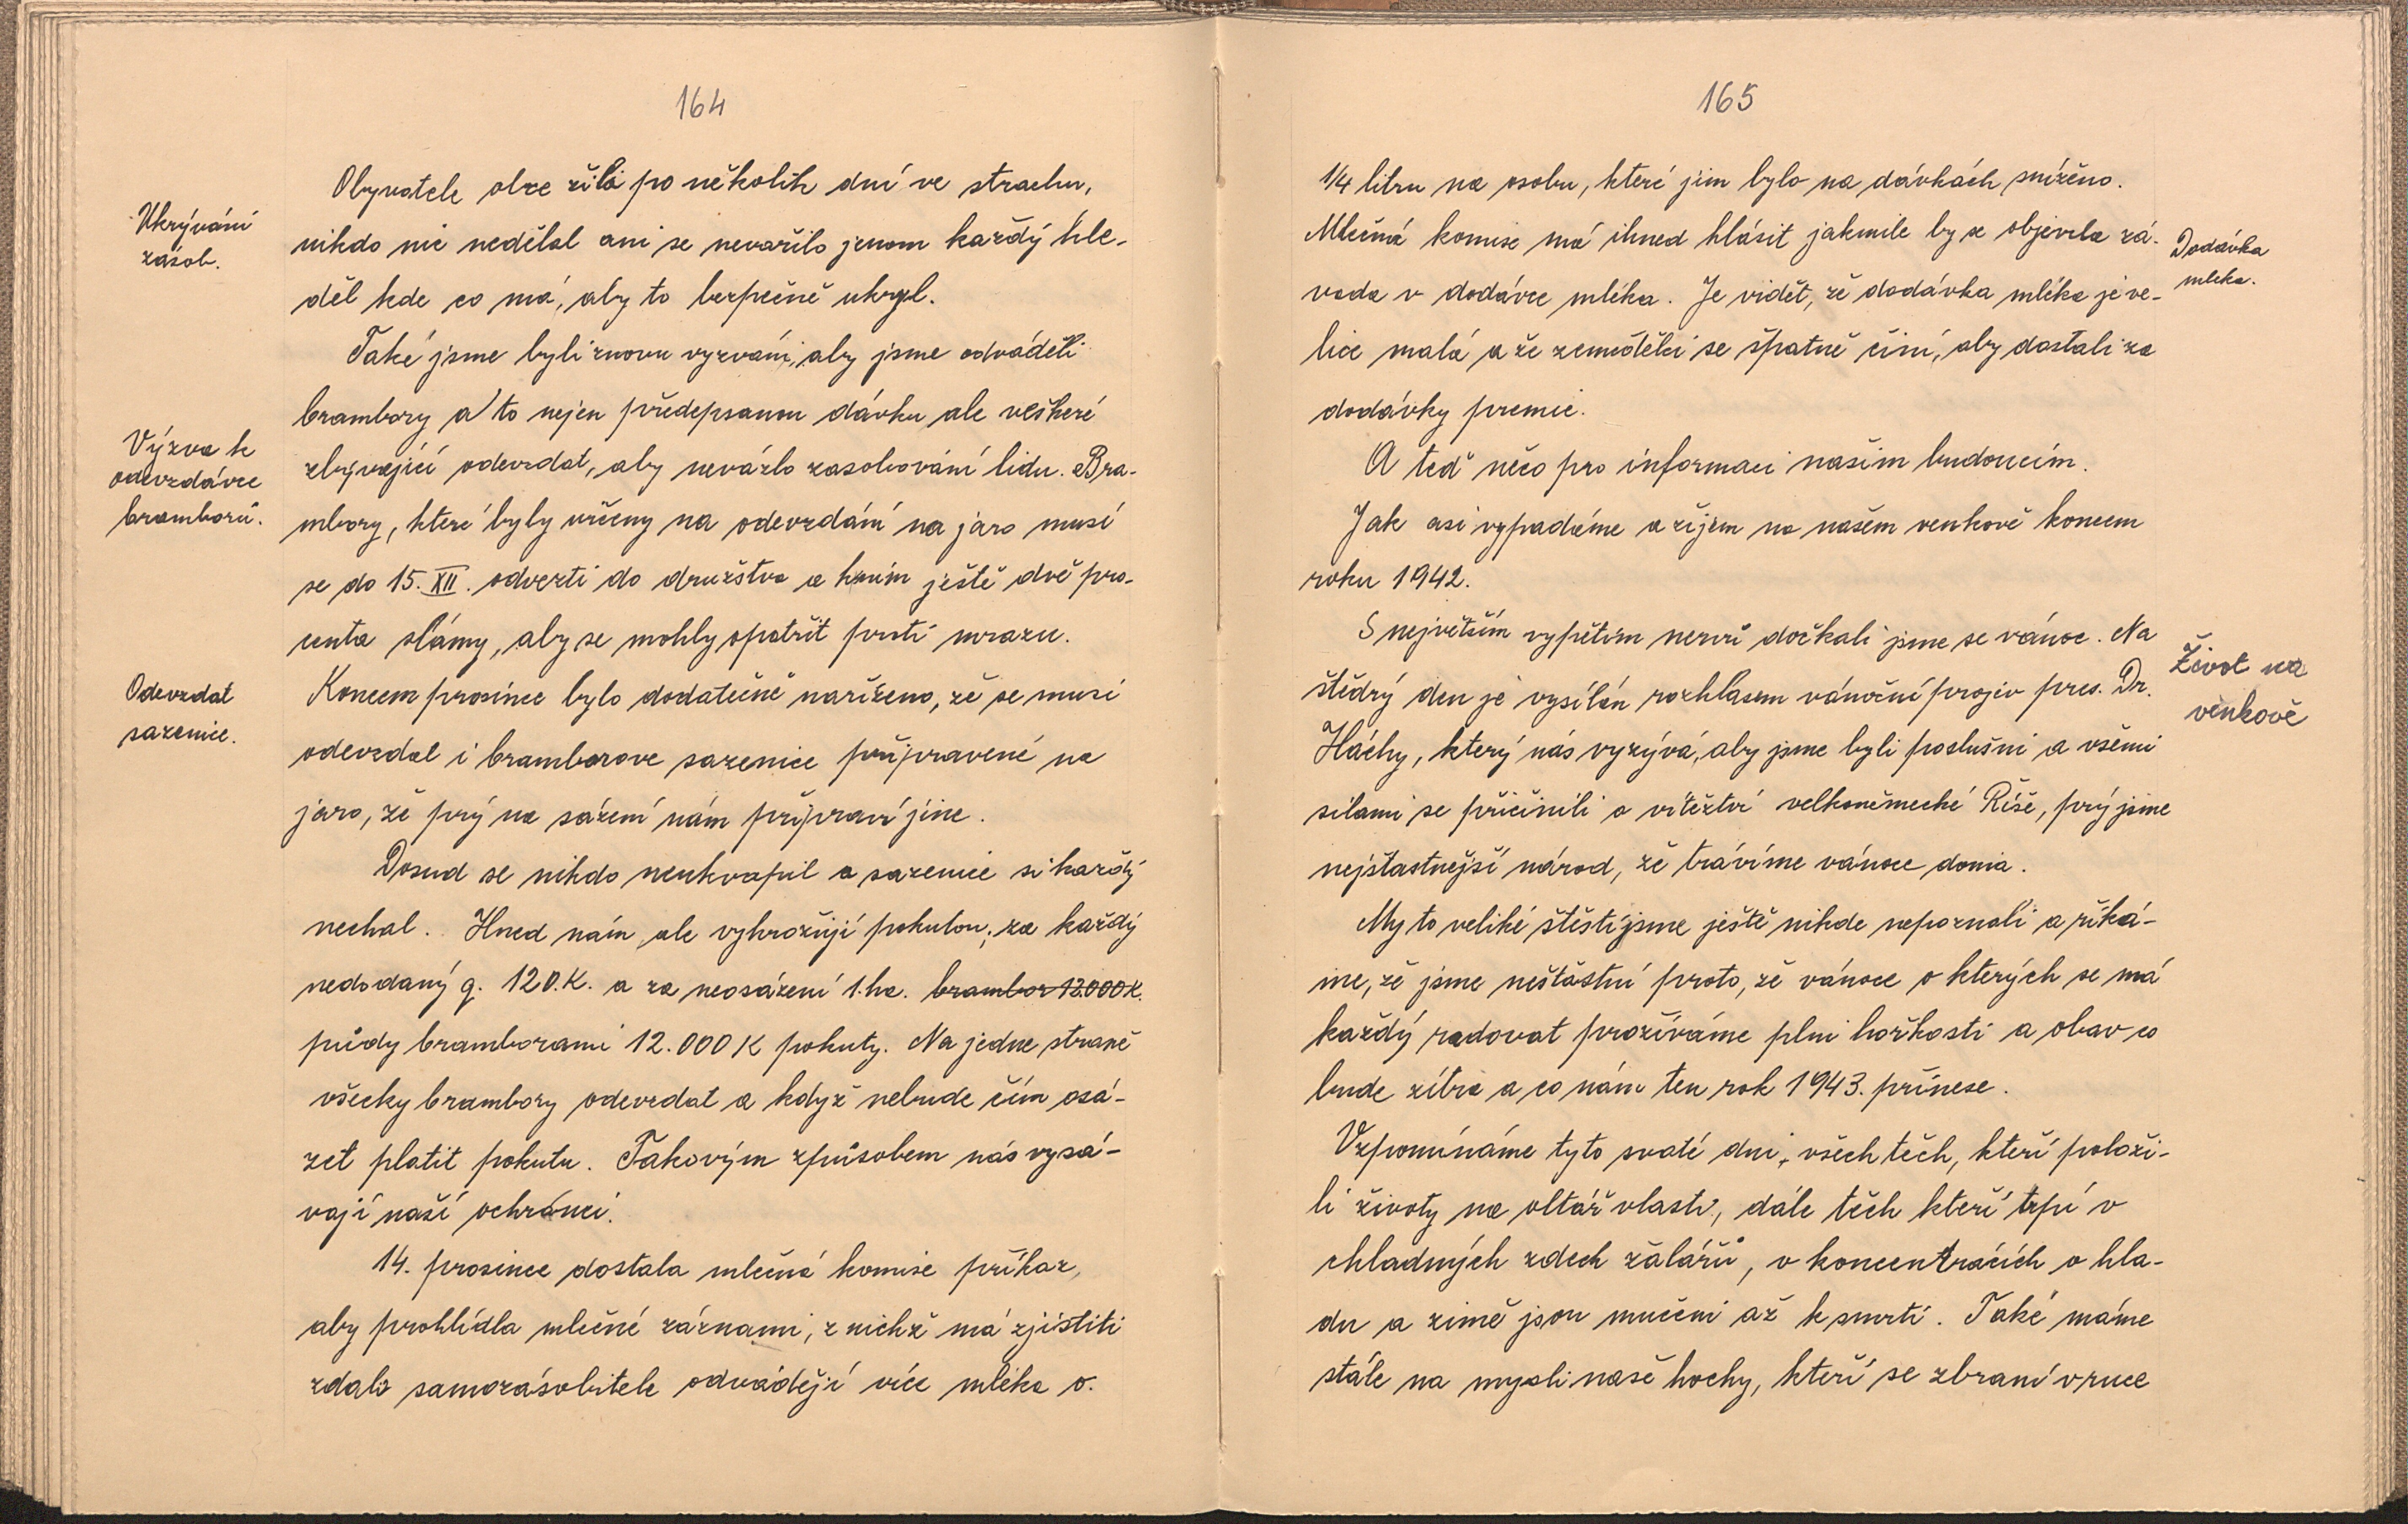 164
Obyvatelé obce žila po několik dní ve strachu,
Ukrývání
zásob.
nikdo nic nedělal ani se nevařilo jenom každý hle-
děl kde co má, aby to bezpečně ukryl.
Také jsme byli znovu vyzváni, aby jsme odváděli
brambory a to nejen předepsanou dávku ale veškeré
Výzva k
odevzdávce
bramborů.
zbývající odevzdat, aby nevázlo zasobování lidu. Bra-
mbory, které byly určeny na odevzdání na jaro musí
se do 15. XII. odvezti do družstva a k nim ještě dvě pro-
centa slámy, aby se mohly opatřit proti mrazu.
Odevzdat
sazenice.
Koncem prosince bylo dodatečně nařízeno, že se musí
odevzdat i bramborove sazenice připravené na
jaro, že prý na sázení nám připraví jine.
Dosud se nikdo neukvapil a sazenice si každý
nechal. Hned nám ale vyhrožují pokutou, za každý
nedodaný q. 120.K. a za neosázení 1.ha. brambor 12.000K.
půdy bramborami 12.000 K pokuty. Na jedne straně
všecky brambory odevzdat a když nebude čím osá-
zet platit pokutu. Takovým způsobem nás vysá-
vají naší ochránci.
14. prosince dostala mlečná komise příkaz,
aby prohlídla mlečné záznami, z nichž má zjistiti
zdali samozásobitele odvádějí více mléka o.
165
1/4 litru na osobu, které jim bylo na dávkách sníženo.
Mlečná komise má ihned hlásit jakmile by se objevila zá-
Dodávka
mleka.
vada v dodávce mléka. Je vidět, že dodávka mléka je ve-
lice malá a že zemědělci se špatně činí, aby dostali za
dodávky premie.
A teď něco pro informaci našim budoucím.
Jak asi vypadáme a žijem na našem venkově koncem
roku 1942.
S největším vypětím nervů dočkali jsme se vánoc. Na
Život na
venkově
štědrý den je vysílán rozhlasem vánoční projev pres. Dr.
Háchy, který nás vyzývá, aby jsme byli poslušni a všemi
silami se přičinili o vítězství velkoněmecké Říše, prý jsme
nejšťastnější národ, že trávíme vánoce doma.
My to veliké štěstí jsme ještě nikde nepoznali a říká-
me, že jsme nešťastní proto, že vánoce o kterých se má
každý radovat prožíváme plni hořkosti a obav co
bude zítra a co nám ten rok 1943. přinese.
Vzpomínáme tyto svaté dni, všech těch, kteří položi-
li životy na oltář vlasti, dále těch kteří trpí v
chladných zdech žalářů, v koncentrácích o hla-
du a zimě jsou mučeni až k smrti. Také máme
stále na mysli naše hochy, kteří se zbraní v ruce